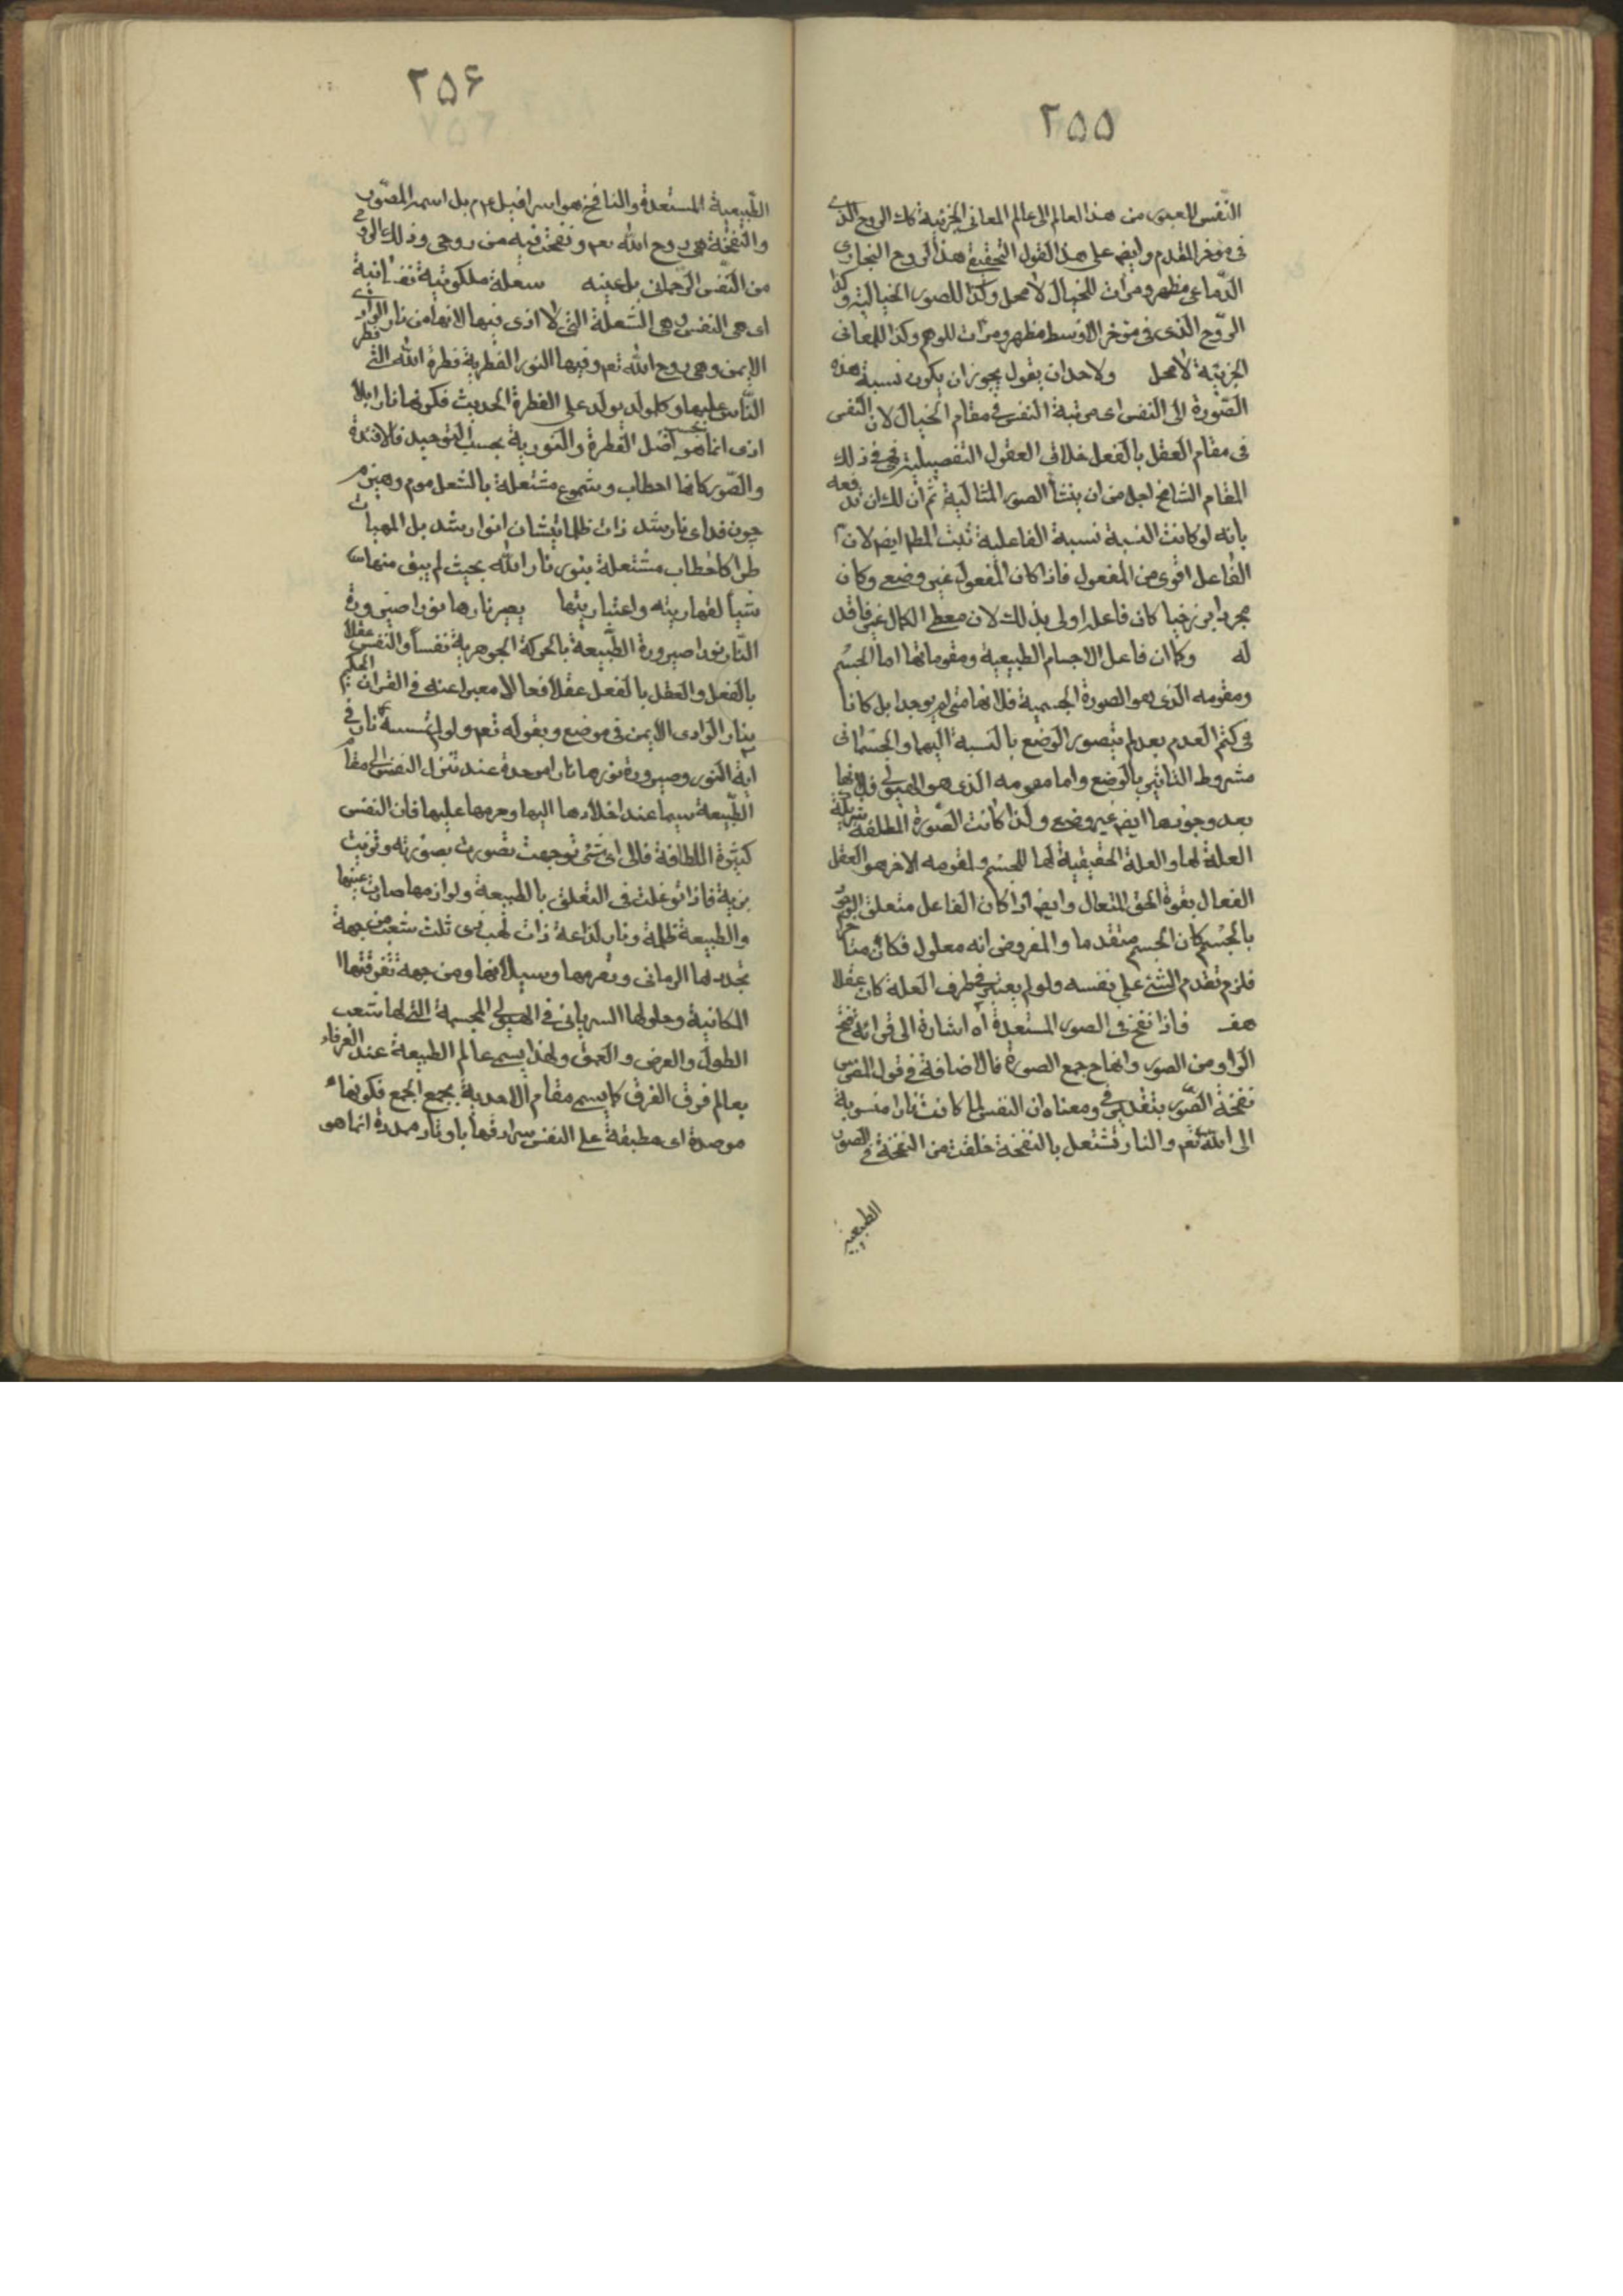 ٢٥٥
النفس للعبور من هذا العالم الى عالم المعانى الجزئية كك الروح الذى
فى مؤخر المقدم وايض على هذا القول التحقيق هذا الروح البخارى
الدماغى مظهر ومرات للخيال لا محل وكذا للصور الخيالية وكذا
الروح الذى فى مؤخر الاوسط مظهر ومرات للوهم وكذا للمعانى
الجزئية لا محل ولاحد ان يقول يجوز ان يكون نسبة هذه
الصورة الى النفس اى مرتبة النفس فى مقام الخيال لان النفس
فى مقام العقل بالفعل خلاق العقول التفصيلية فهى فى ذلك
المقام الشامخ اجل من ان ينشأ الصور المثالية ثم ان لك ان تدفعه
بانه لو كانت النسبة نسبة الفاعلية ثبت المط ايض لان
الفاعل اقوى من المفعول فاذا كان المفعول غير وضعى وكان
مجردا برزخيا كان فاعله اولى بذلك لان معطى الكمال غير فاقد
له وكما ان فاعل الاجسام الطبيعية ومقوماتها اما الجسم
ومقومه الذى هو الصورة الجسمية فلانهما متى لم يوجدا بل كانا
فى كتم العدم بعد لم يتصور الوضع بالنسبة اليهما والجسمانى
مشروط التاثير بالوضع واما مقومه الذى هو الهيولى فلانها
بعد وجودها ايض غير وضعى ولذا كانت الصورة المطلقة شريكة
العلة لها والعلة الحقيقية لها للجسم ولمقومه الاخر هو العقل
الفعال بقوة الحق المتعال وايض اذا كان الفاعل متعلق الوجود
بالجسم كان الجسم متقدما والمفروض انه معلول فكان متاخرا
فلزم تقدم الشئ على نفسه ولو لم يعتبر فى طرف العلة كان عقلا
هف فاذا نفخ فى الصور المستعدة اه اشارة الى قرائة فتح
الواو من الصور وانها جمع الصورة فالاضافة فى قول المفسر
نفخة الصور بتقدير فى ومعناه ان النفس لما كانت نارا منسوبة
الى الله تعم والنار تشتعل بالنفخة خلقت من النفخة فى الصور
الطبيعية
٢٥۶
الطبيعية المستعدة والنافخ هو اسرافيل ع م بل اسم المصور
والنفخة هى روح الله تعم ونفخت فيه من روحى وذلك الروح
من النفس الرحمانى بل عينه شعلة ملكوتية نفسانية
اى هى النفس وهى الشعلة التى لا اذى فيها لانها من نار الوادى
الايمن وهى روح الله تعم وفيها النور الفطرية فطرة الله التى فطر
الناس عليها وكل مولود يولد على الفطرة الحديث فكونها نارا بلا
اذى انما هو بحسب اصل الفطرة والنورية بحسب التوحيد فالافئدة
والصور كانها احطاب وشموع مشتعلة بالشعل موم وهيزم
چون فداى نار شد ذات ظلمانيشان انوار شد بل المهيات
طرا كاحطاب مشتعلة بنور نار الله بحيث لم يبق منها
شيأ لقهاريته واعتباريتها يصير نارها نورا صيرورة
النار نورا صيرورة الطبيعة بالحركة الجوهرية نفسا والنفس عقلا
بالفعل والعقل بالفعل عقلا فعالا معبرا عنه فى القران الحكيم
بنار الوادى الايمن فى موضع وبقوله تعم ولو لم تمسسه نار فى
اية النور وصيرورة نورها نارا موصدة عند تنزل النفس الى مقام
الطبيعة سيما عند اخلادها اليها وحرصها عليها فان النفس
كثيرة اللطافة فالى اى شئ توجهت تصورت بصورته وتزيت
بزيه فاذا توغلت فى التعلق بالطبيعة ولوازمها صارت عينها
والطبيعة ظلمة ونار لذاعة ذات لهب ذى ثلث شعب من جهة
تجددها الزمانى وتصرمها وسيلانها ومن جهة تفرقتها
المكانية وحلولها السريانى فى الهيولى المجسمة التى لها شعب
الطول والعرض والعمق ولهذا يسمى عالم الطبيعة عند العرفاء
بعالم فرق الفرق كما يسمى مقام الاحدية بجمع الجمع فكونها
موصدة اى مطبقة على النفس سرادقها باوتار ممددة انما هو